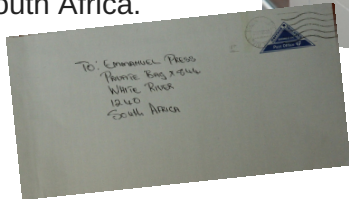 outh Africa.
TO: EMMANUEL PRESS
PRIVATE BAG X
WHITE RIVER
1240
SOUTH AFRICA